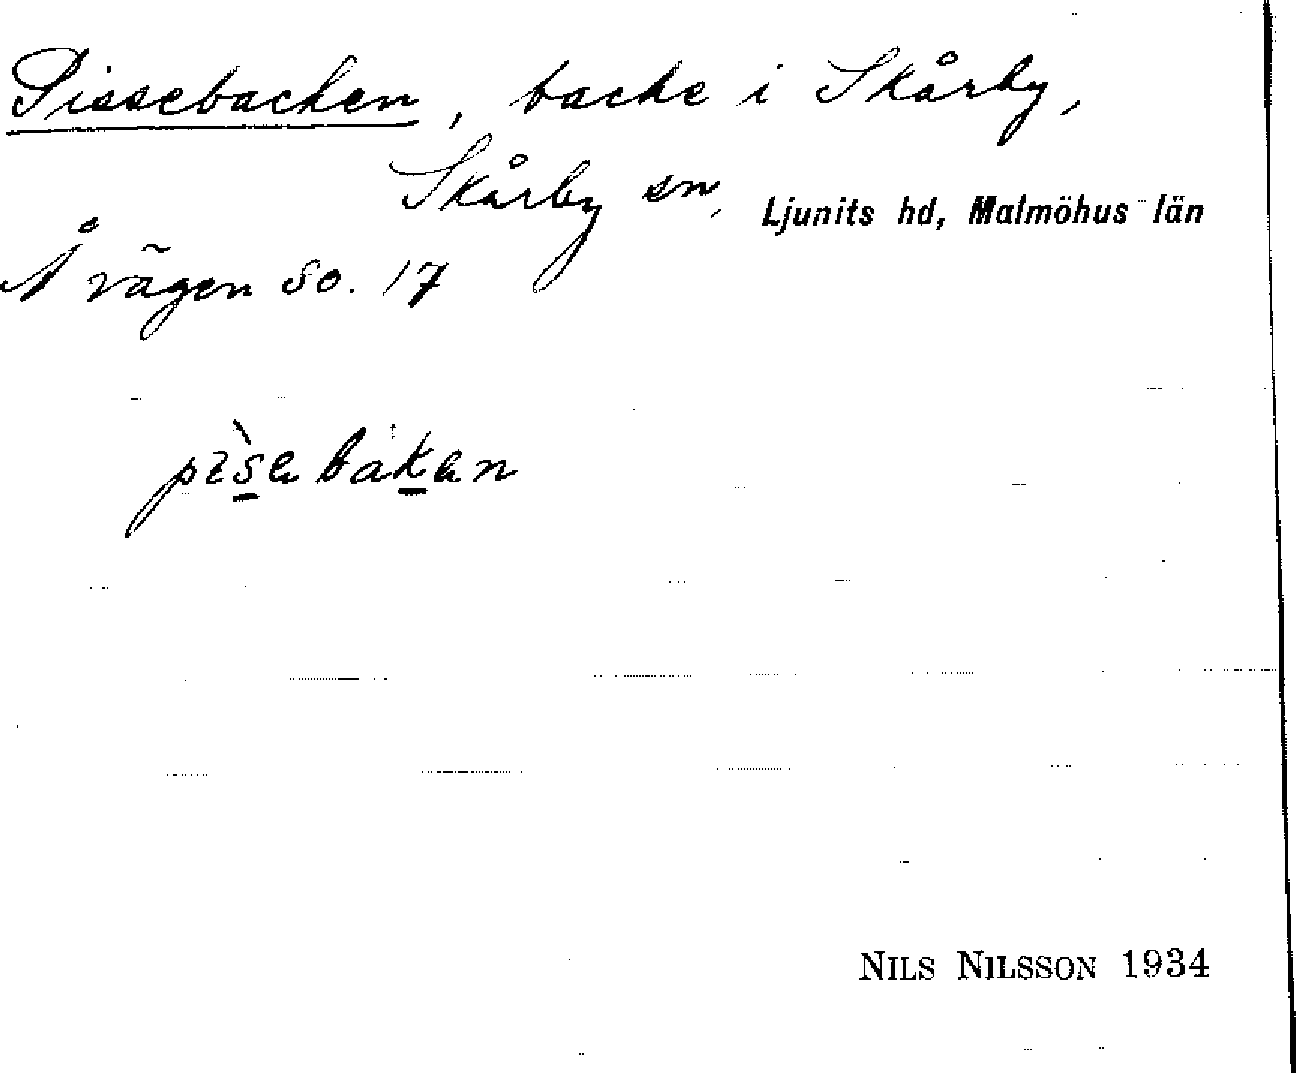 Pissebacken, backe i Skårby,
Skårby sn, Ljunits hd, Malmöhus län
Å vägen So. 17
pisebakan
NILS NILSSON 1934